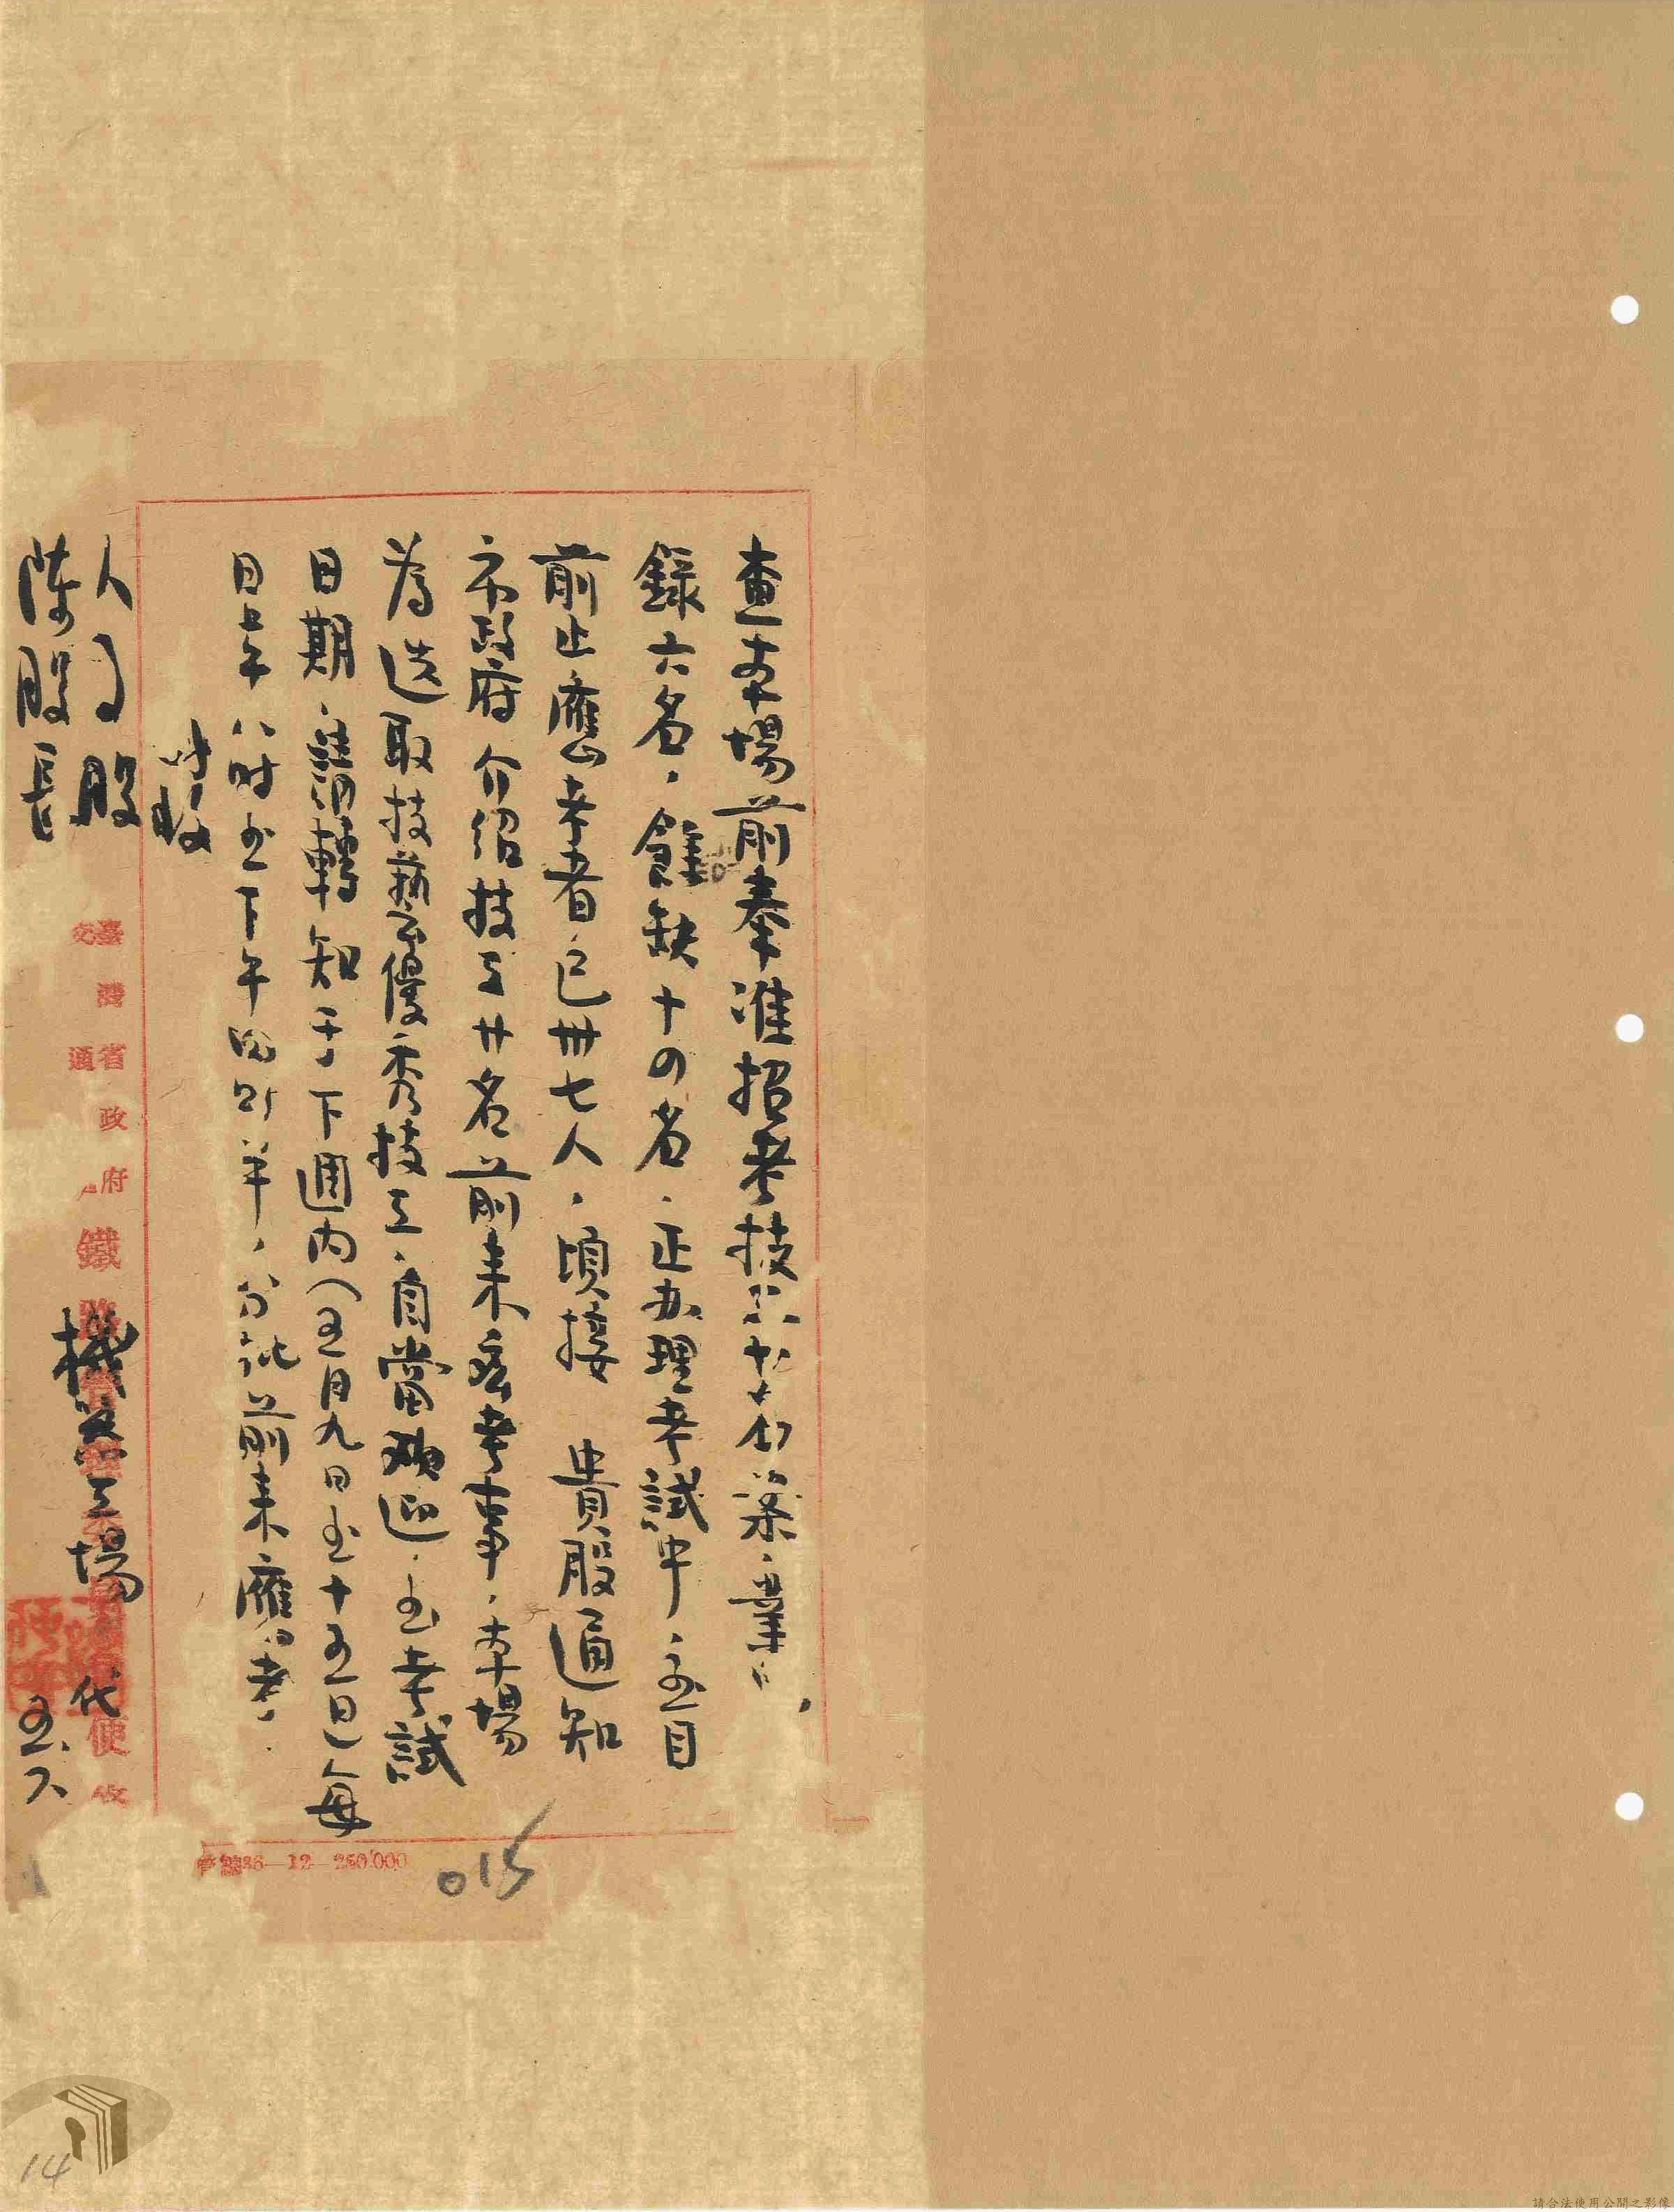 查本場前奉准招考技工廿名一案，業
錄六名，餘缺十四名，正办理考試中，至目
前止應考者已卅七人，頃接　貴股通知
市政府介紹技工廿名前來應考事，本場
為选取技術優秀技工，自當歡迎，至考試
日期，請轉知于下週内（五月九日至十五日）每
日上午八时至下午四时半，前來應考，
此致
人事股
陳股長
機器工場
代
五.六
臺灣省政府
交通
鐵路管理
使收
36-12-250.000
015
14
請合法使用公開之影像